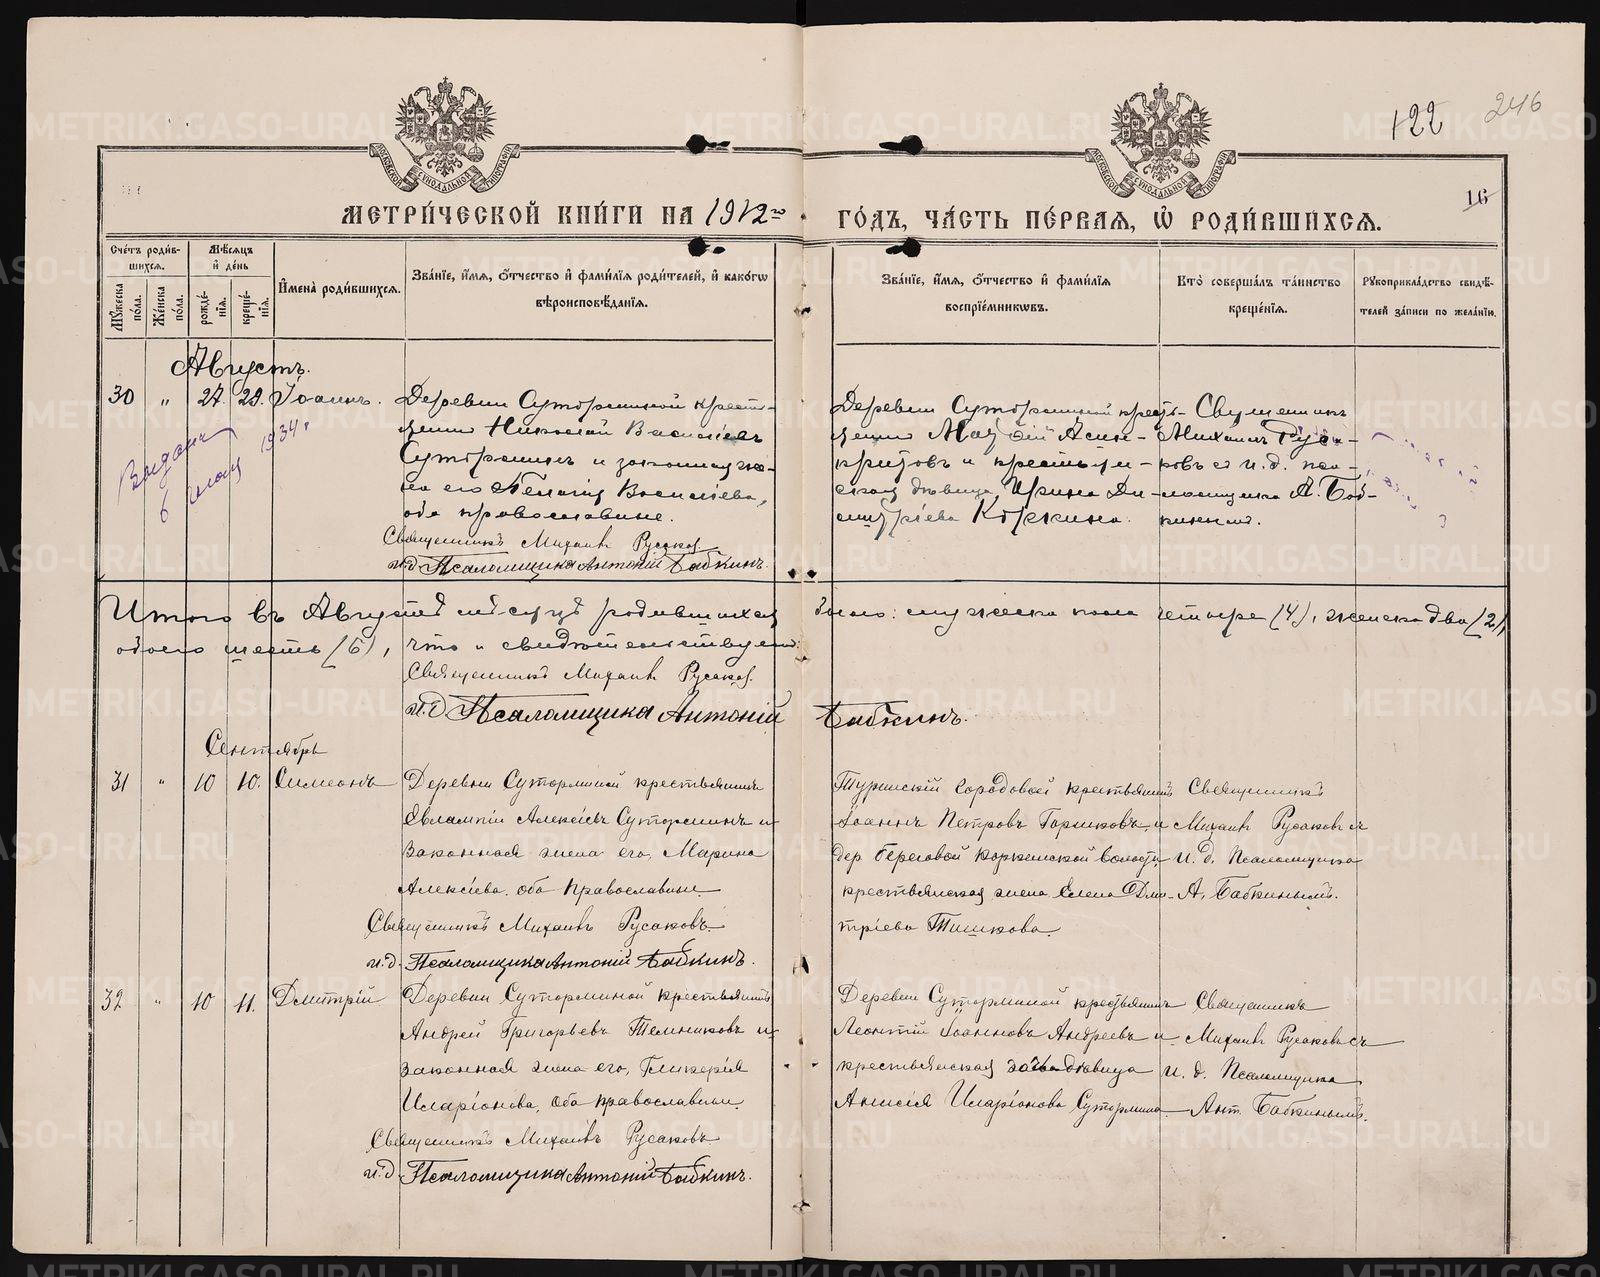 122
246
16
МОСКОВСКОЙ СѴНОДАЛЬНОЙ ТИПОГРАФІИ
МОСКОВСКОЙ СѴНОДАЛЬНОЙ ТИПОГРАФІИ
МЕТРИ́ЧЕСКОЙ КНИ́ГИ НА 1912го
ГО́ДЪ, ЧА́СТЬ ПЕ́РВАЯ, Ѡ҆ РОДИ́ВШИХСЯ.
Сче́тъ роди́в-
шихся.
Му́жеска по́ла.
Же́нска по́ла.
Мѣ́сяцъ
и҆ де́нь
рожде́-
нїя.
креще́-
нїя.
И҆мена̀ роди́вшихся.
Зва́нїе, и҆́мя, ѻ҆́тчество и҆ фами́лїя роди́телей, и҆ како́гѡ
вѣроисповѣ́данїя.
Зва́нїе, и҆́мя, ѻ҆́тчество и҆ фами́лїя
воспрїе́мникѡвъ.
Кто̀ соверша́лъ та́инство
креще́нїя.
Рꙋкоприкла́дство свидѣ́-
телей за́писи по жела́нїю.
Августъ.
30 " 27. 29. Іоаннъ.
Деревни Суторминой кресть-
янинъ Николай Васильевъ
Сутормин и законная же-
на его Пелагія Васильева,
оба православные.
Священникъ Михаилъ Русаковъ
и.д. Псаломщика Антоній Бабкинъ.
Деревни Суторминой кресть-
янинъ
и крестьян-
ская дѣвица Ирина Ди-
митріева Коркина.
Священник
Михаилъ Руса-
ковъ с и. д. пса-
ломщика А. Баб-
киным.
Выдана
6 мая 1934 г
Итого въ Августѣ мѣсяцѣ родившихся было: мужеска пола четыре (4), женска два (2),
обоего шесть (6), что и свидѣтельствуем:
Священникъ Михаилъ Русаковъ.
и.д. Псаломщика Антоній Бабкинъ.
Сентябрь
31 " 10 10. Симеонъ
Деревни Суторминой крестьянинъ
Евлампій Алексѣевъ Суторминъ и
законная жена его, Марина
Алексѣева, оба православные
Священникъ Михаилъ Русаковъ
и.д. Псаломщика Антоній Бабкинъ.
Туринскій городовой крестьянинъ
Іоаннъ Петровъ Горшковъ и
дер. Береговой Коркинской волости
крестьянская жена Елена Дми-
тріева Тишкова.
Священникъ
Михаилъ Русаковъ с
и. д. Псаломщика
А. Бабкинымъ.
32 " 10 11. Дмитрій
Деревни Суторминой крестьянинъ
Андрей Григорьевъ Телминовъ и
законная жена его, Гликерія
Иларіонова, оба православные.
Священникъ Михаилъ Русаковъ
и.д. Псаломщика Антоній Бабкинъ.
Деревни Суторминой крестьянинъ
Леонтій Іоанновъ Андреевъ и
крестьянская дѣвица
Анисія Иларіонова Сутормина
Священникъ
Михаилъ Русаковъ съ
и. д. Псаломщика
Ант. Бабкинымъ.
METRIKI.GASO-URAL.RU